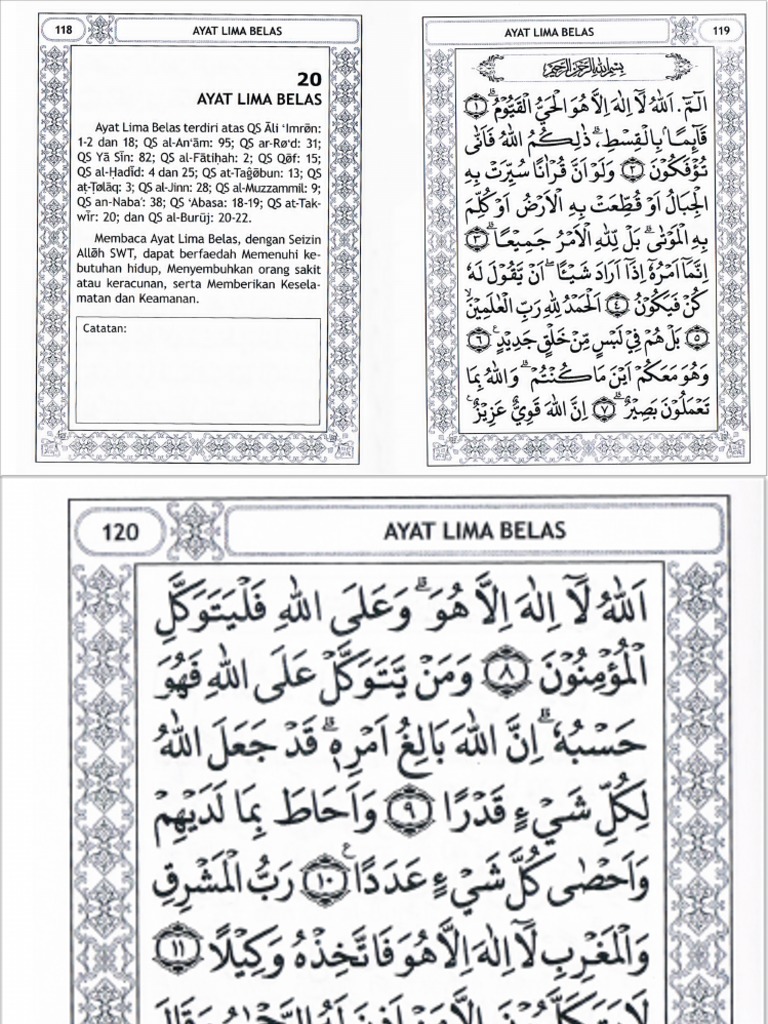 118
AYAT LIMA BELAS
20
AYAT LIMA BELAS
Ayat Lima Belas terdiri atas QS Āli ‘Imrøn:
1-2 dan 18; QS al-An‘ām: 95; QS ar-Rø‘d: 31;
QS Yā Sīn: 82; QS al-Fātiḥah: 2; QS Qøf: 15;
QS al-Ḥadīd: 4 dan 25; QS at-Taĝøbun: 13; QS
aṭ-Ṭølāq: 3; QS al-Jinn: 28; QS al-Muzzammil: 9;
QS an-Naba’: 38; QS ‘Abasa: 18-19; QS at-Tak-
wīr: 20; dan QS al-Burūj: 20-22.
Membaca Ayat Lima Belas, dengan Seizin
Alløh SWT, dapat berfaedah Memenuhi ke-
butuhan hidup, Menyembuhkan orang sakit
atau keracunan, serta Memberikan Kesela-
matan dan Keamanan.
Catatan:
AYAT LIMA BELAS
119
بِسْمِ اللّٰهِ الرَّحْمٰنِ الرَّحِيْمِ
الٓمّٓ. اَللّٰهُ لَآ اِلٰهَ اِلَّا هُوَ الْحَيُّ الْقَيُّوْمُۗ ﴿١﴾
قَآىِٕمًاۢ بِالْقِسْطِۗ، ذٰلِكُمُ اللّٰهُ فَاَنّٰى
تُؤْفَكُوْنَ ﴿٢﴾ وَلَوْ اَنَّ قُرْاٰنًا سُيِّرَتْ بِهِ
الْجِبَالُ اَوْ قُطِّعَتْ بِهِ الْاَرْضُ اَوْ كُلِّمَ
بِهِ الْمَوْتٰىۗ بَلْ لِلّٰهِ الْاَمْرُ جَمِيْعًاۗ ﴿٣﴾
اِنَّمَآ اَمْرُهٗٓ اِذَآ اَرَادَ شَيْـًٔاۖ اَنْ يَّقُوْلَ لَهٗ
كُنْ فَيَكُوْنُ ﴿٤﴾ اَلْحَمْدُ لِلّٰهِ رَبِّ الْعٰلَمِيْنَۙ
﴿٥﴾ بَلْ هُمْ فِيْ لَبْسٍ مِّنْ خَلْقٍ جَدِيْدٍࣖ ﴿٦﴾
وَهُوَ مَعَكُمْ اَيْنَ مَا كُنْتُمْۗ وَاللّٰهُ بِمَا
تَعْمَلُوْنَ بَصِيْرٌۗ ﴿٧﴾ اِنَّ اللّٰهَ قَوِيٌّ عَزِيْزٌࣖ
120
AYAT LIMA BELAS
اَللّٰهُ لَآ اِلٰهَ اِلَّا هُوَۗ وَعَلَى اللّٰهِ فَلْيَتَوَكَّلِ
الْمُؤْمِنُوْنَ ﴿٨﴾ وَمَنْ يَّتَوَكَّلْ عَلَى اللّٰهِ فَهُوَ
حَسْبُهٗۗ اِنَّ اللّٰهَ بَالِغُ اَمْرِهٖۗ قَدْ جَعَلَ اللّٰهُ
لِكُلِّ شَيْءٍ قَدْرًا ﴿٩﴾ وَاَحَاطَ بِمَا لَدَيْهِمْ
وَاَحْصٰى كُلَّ شَيْءٍ عَدَدًاࣖ ﴿١٠﴾ رَبُّ الْمَشْرِقِ
وَالْمَغْرِبِ لَآ اِلٰهَ اِلَّا هُوَ فَاتَّخِذْهُ وَكِيْلًا ﴿١١﴾
لَا يَتَكَلَّمُوْنَ اِلَّا مَنْ اَذِنَ لَهُ الرَّحْمٰنُ وَقَالَ